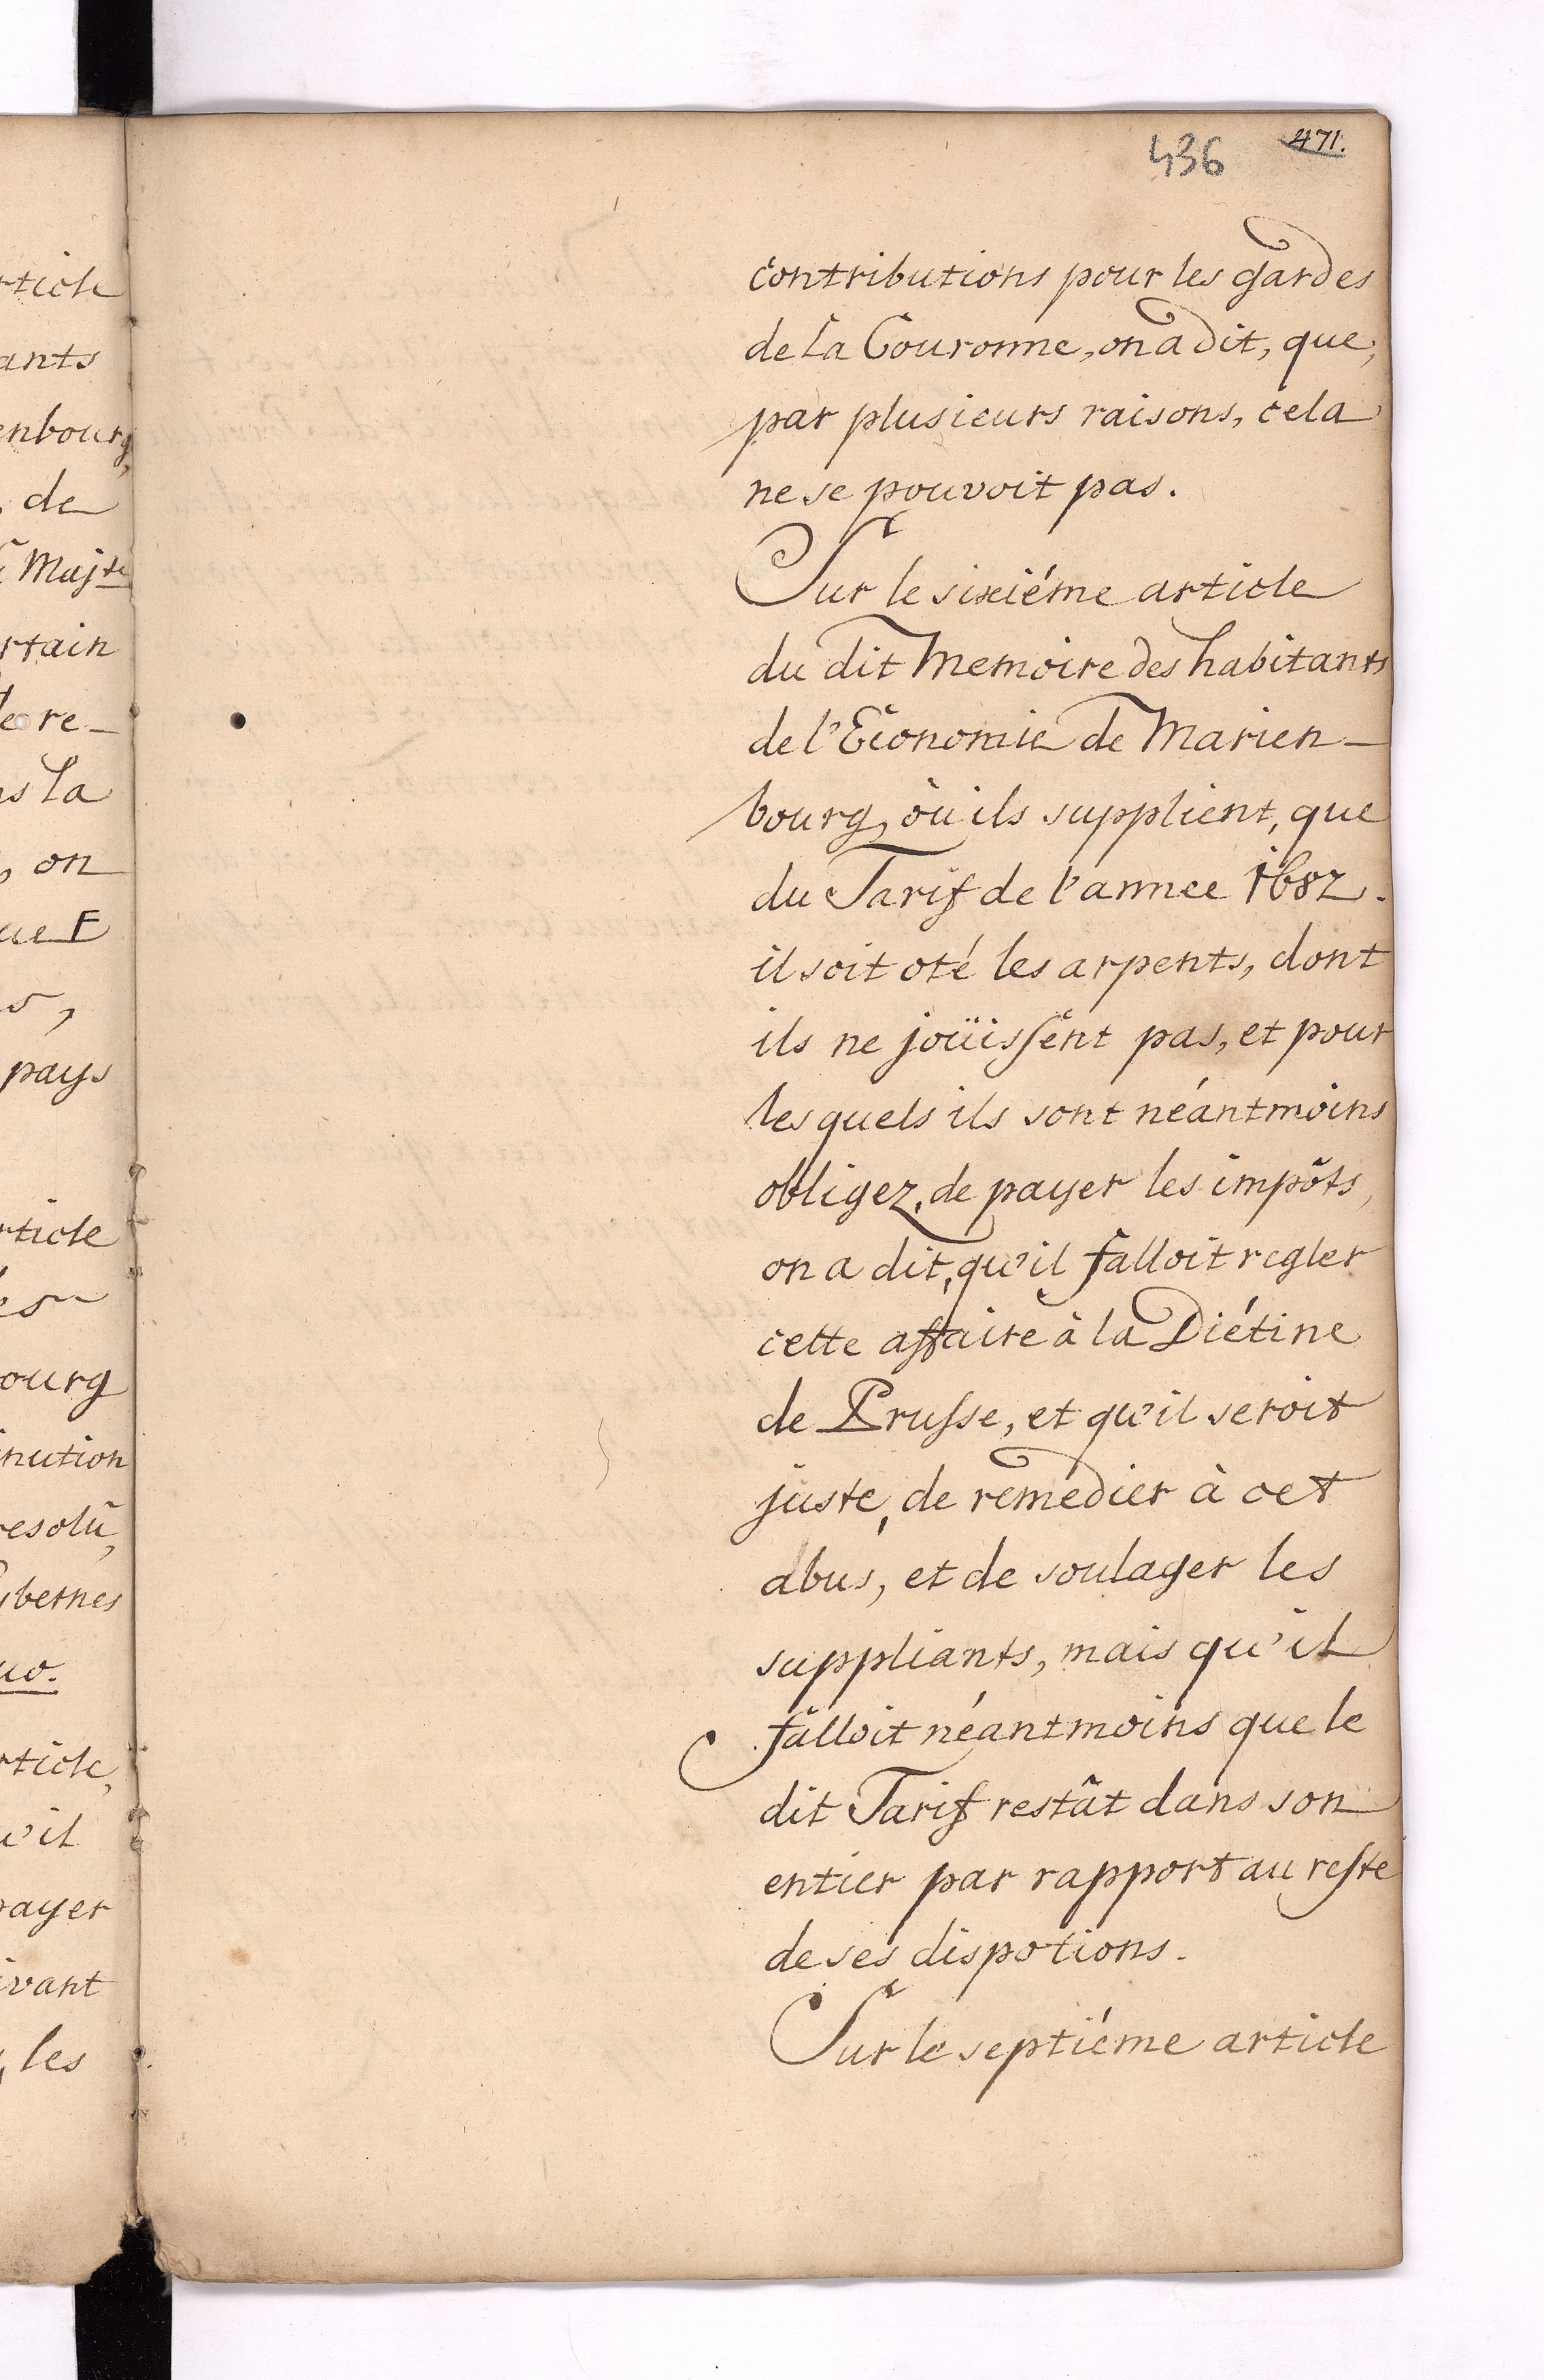 rticle
ants
enbourg,
de
Majte
rtain
re-
la
on
pays
rticle
ourg
nution
resolû,
rticle,
'il
payer
ivant
les
436
471.
contributions pour les gardes
de la Couronne, on a dit, que,
par plusieurs raisons, cela
ne se pouvoit pas.
Sur le sixiéme article
du dit Memoire des habitants
de l'Economie de Marien-
bourg, où ils supplient, que
du Tarif de l'annee 1682.
il soit oté les arpents, dont
ils ne joüissent pas, et pour
lesquels ils sont néantmoins
obligez, de payer les impôts,
on a dit, qu'il falloit regler
cette affaire à la Diétine
de Prusse, et qu'il seroit
juste, de remedier à cet
abus, et de soulager les
suppliants, mais qu'il
falloit néantmoins que le
dit Tarif restât dans son
entier par rapport au reste
de ses dispotions.
Sur le septiéme article